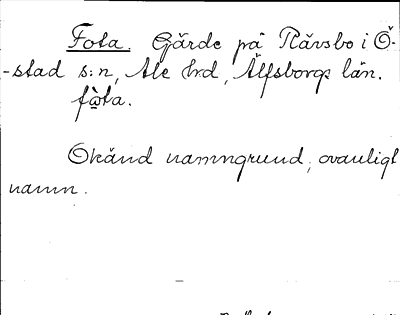 Fota. Gärde på Rävsbo i Ö-
-stad s:n, Ale hrd, Älfsborgs län.
fòta.
Okänd namngrund, ovanligt
namn.